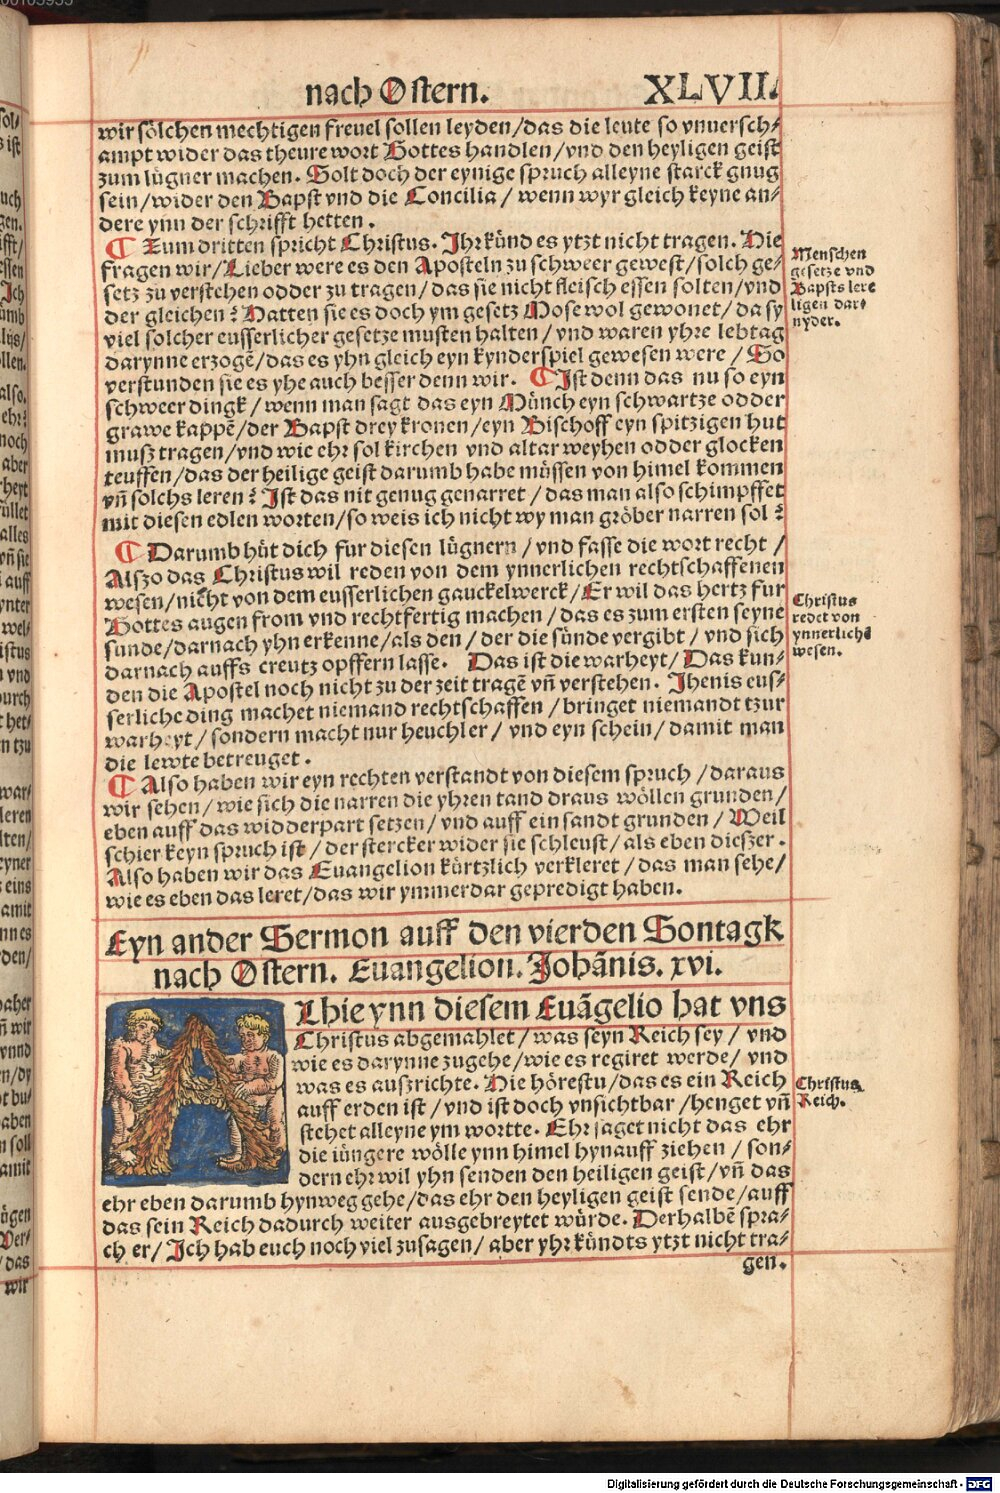 nach Ostern. XLVII.
wir sölchen mechtigen freuel sollen leyden/das die leute so vnuersch⸗
ampt wider das theure wort Gottes handlen/vnd den heyligen geist
zum lügner machen. Solt doch der eynige spruch alleyne starck gnug
sein/wider den Bapst vnd die Concilia/ wenn wyr gleich keyne an⸗
dere ynn der schrifft hetten.
¶ Zum dritten spricht Christus. Ihr künd es ytzt nicht tragen. Hie
fragen wir/Lieber were es den Aposteln zu schweer gewest/solch ge⸗
setz zu verstehen odder zu tragen/das sie nicht fleisch essen solten/vnd
der gleichen? Hatten sie es doch ym gesetz Mose wol gewonet/da sy
viel solcher eusserlicher gesetze musten halten/vnd waren yhre lebtag
darynne erzogē/das es yhn gleich eyn kynderspiel gewesen were/ So
verstunden sie es yhe auch besser denn wir. ¶ Ist denn das nu so eyn
schweer dingk/wenn man sagt das eyn Münch eyn schwartze odder
grawe kappē/der Bapst drey kronen/eyn Bischoff eyn spitzigen hut
musz tragen/vnd wie ehr sol kirchen vnd altar weyhen odder glocken
teuffen/das der heilige geist darumb habe müssen von himel kommen
vn̄ solchs leren? Ist das nit genug genarret/das man also schimpffet
mit diesen edlen worten/so weis ich nicht wy man gröber narren sol?
¶ Darumb hüt dich fur diesen lügnern/vnd fasse die wort recht/
Alszo das Christus wil reden von dem ynnerlichen rechtschaffenen
wesen/nicht von dem eusserlichen gauckelwerck/Er wil das hertz fur
Gottes augen from vnd rechtfertig machen/das es zum ersten seyne
sunde/darnach yhn erkenne/als den/der die sünde vergibt/vnd sich
darnach auffs creutz opffern lasse. Das ist die warheyt/Das kun⸗
den die Apostel noch nicht zu der zeit tragē vn̄ verstehen. Ihenis eus⸗
serliche ding machet niemand rechtschaffen/bringet niemandt tzur
warheyt/sondern macht nur heuchler/vnd eyn schein/damit man
die lewte betreuget.
¶ Also haben wir eyn rechten verstandt von diesem spruch/daraus
wir sehen/wie sich die narren die yhren tand draus wöllen grunden/
eben auff das widderpart setzen/vnd auff ein sandt grunden/Weil
schier keyn spruch ist/der stercker wider sie schleust/als eben dieszer.
Also haben wir das Euangelion kürtzlich verkleret/das man sehe/
wie es eben das leret/das wir ymmerdar gepredigt haben.
Menschen
gesetze vnd
Bapsts lere
ligen dar⸗
nyder.
Christus
redet von
ynnerlichē
wesen.
Eyn ander Sermon auff den vierden Sontagk
nach Ostern. Euangelion. Johānis. xvi.
Alhie ynn diesem Euāgelio hat vns
Christus abgemahlet/was seyn Reich sey/vnd
wie es darynne zugehe/wie es regiret werde/vnd
was es auszrichte. Hie hörestu/das es ein Reich
auff erden ist/vnd ist doch vnsichtbar/henget vn̄
stehet alleyne ym wortte. Ehr saget nicht das ehr
die iüngere wölle ynn himel hynauff ziehen/son⸗
dern ehr wil yhn senden den heiligen geist/vn̄ das
ehr eben darumb hynweg gehe/das ehr den heyligen geist sende/auff
das sein Reich dadurch weiter ausgebreytet würde. Derhalbē spra⸗
ch er/Ich hab euch noch viel zusagen/aber yhr kündts ytzt nicht tra⸗
gen.
Christus
Reich.
Digitalisierung gefördert durch die Deutsche Forschungsgemeinschaft - DFG